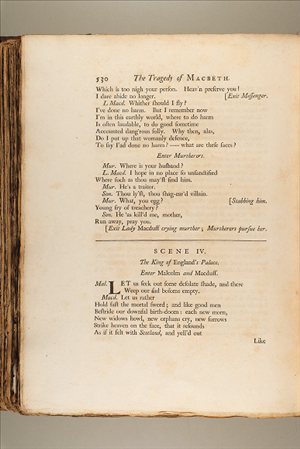 530 The Tragedy of MACBETH.
Which is too nigh your person. Heav'n preserve you!
I dare abide no longer. [Exit Messenger.
L. Macd. Whither should I fly?
I've done no harm. But I remember now
I'm in this earthly world, where to do harm
Is often laudable, to do good sometime
Accounted dang'rous folly. Why then, alas,
Do I put up that womanly defence,
To say I'ad done no harm? — what are these faces?
Enter Murtherers.
Mur. Where is your husband?
L. Macd. I hope in no place so unsanctified
Where such as thou may'st find him.
Mur. He's a traitor.
Son. Thou ly'st, thou shag-ear'd villain.
Mur. What, you egg? [Stabbing him.
Young fry of treachery?
Son. He 'as kill'd me, mother,
Run away, pray you.
[Exit Lady Macduff crying murther; Murtherers pursue her.
SCENE IV.
The King of England's Palace.
Enter Malcolm and Macduff.
Mal. LET us seek out some desolate shade, and there
Weep our sad bosoms empty.
Macd. Let us rather
Hold fast the mortal sword; and like good men
Bestride our downfal birth-doom: each new morn,
New widows howl, new orphans cry, new sorrows
Strike heaven on the face, that it resounds
As if it felt with Scotland, and yell'd out
Like